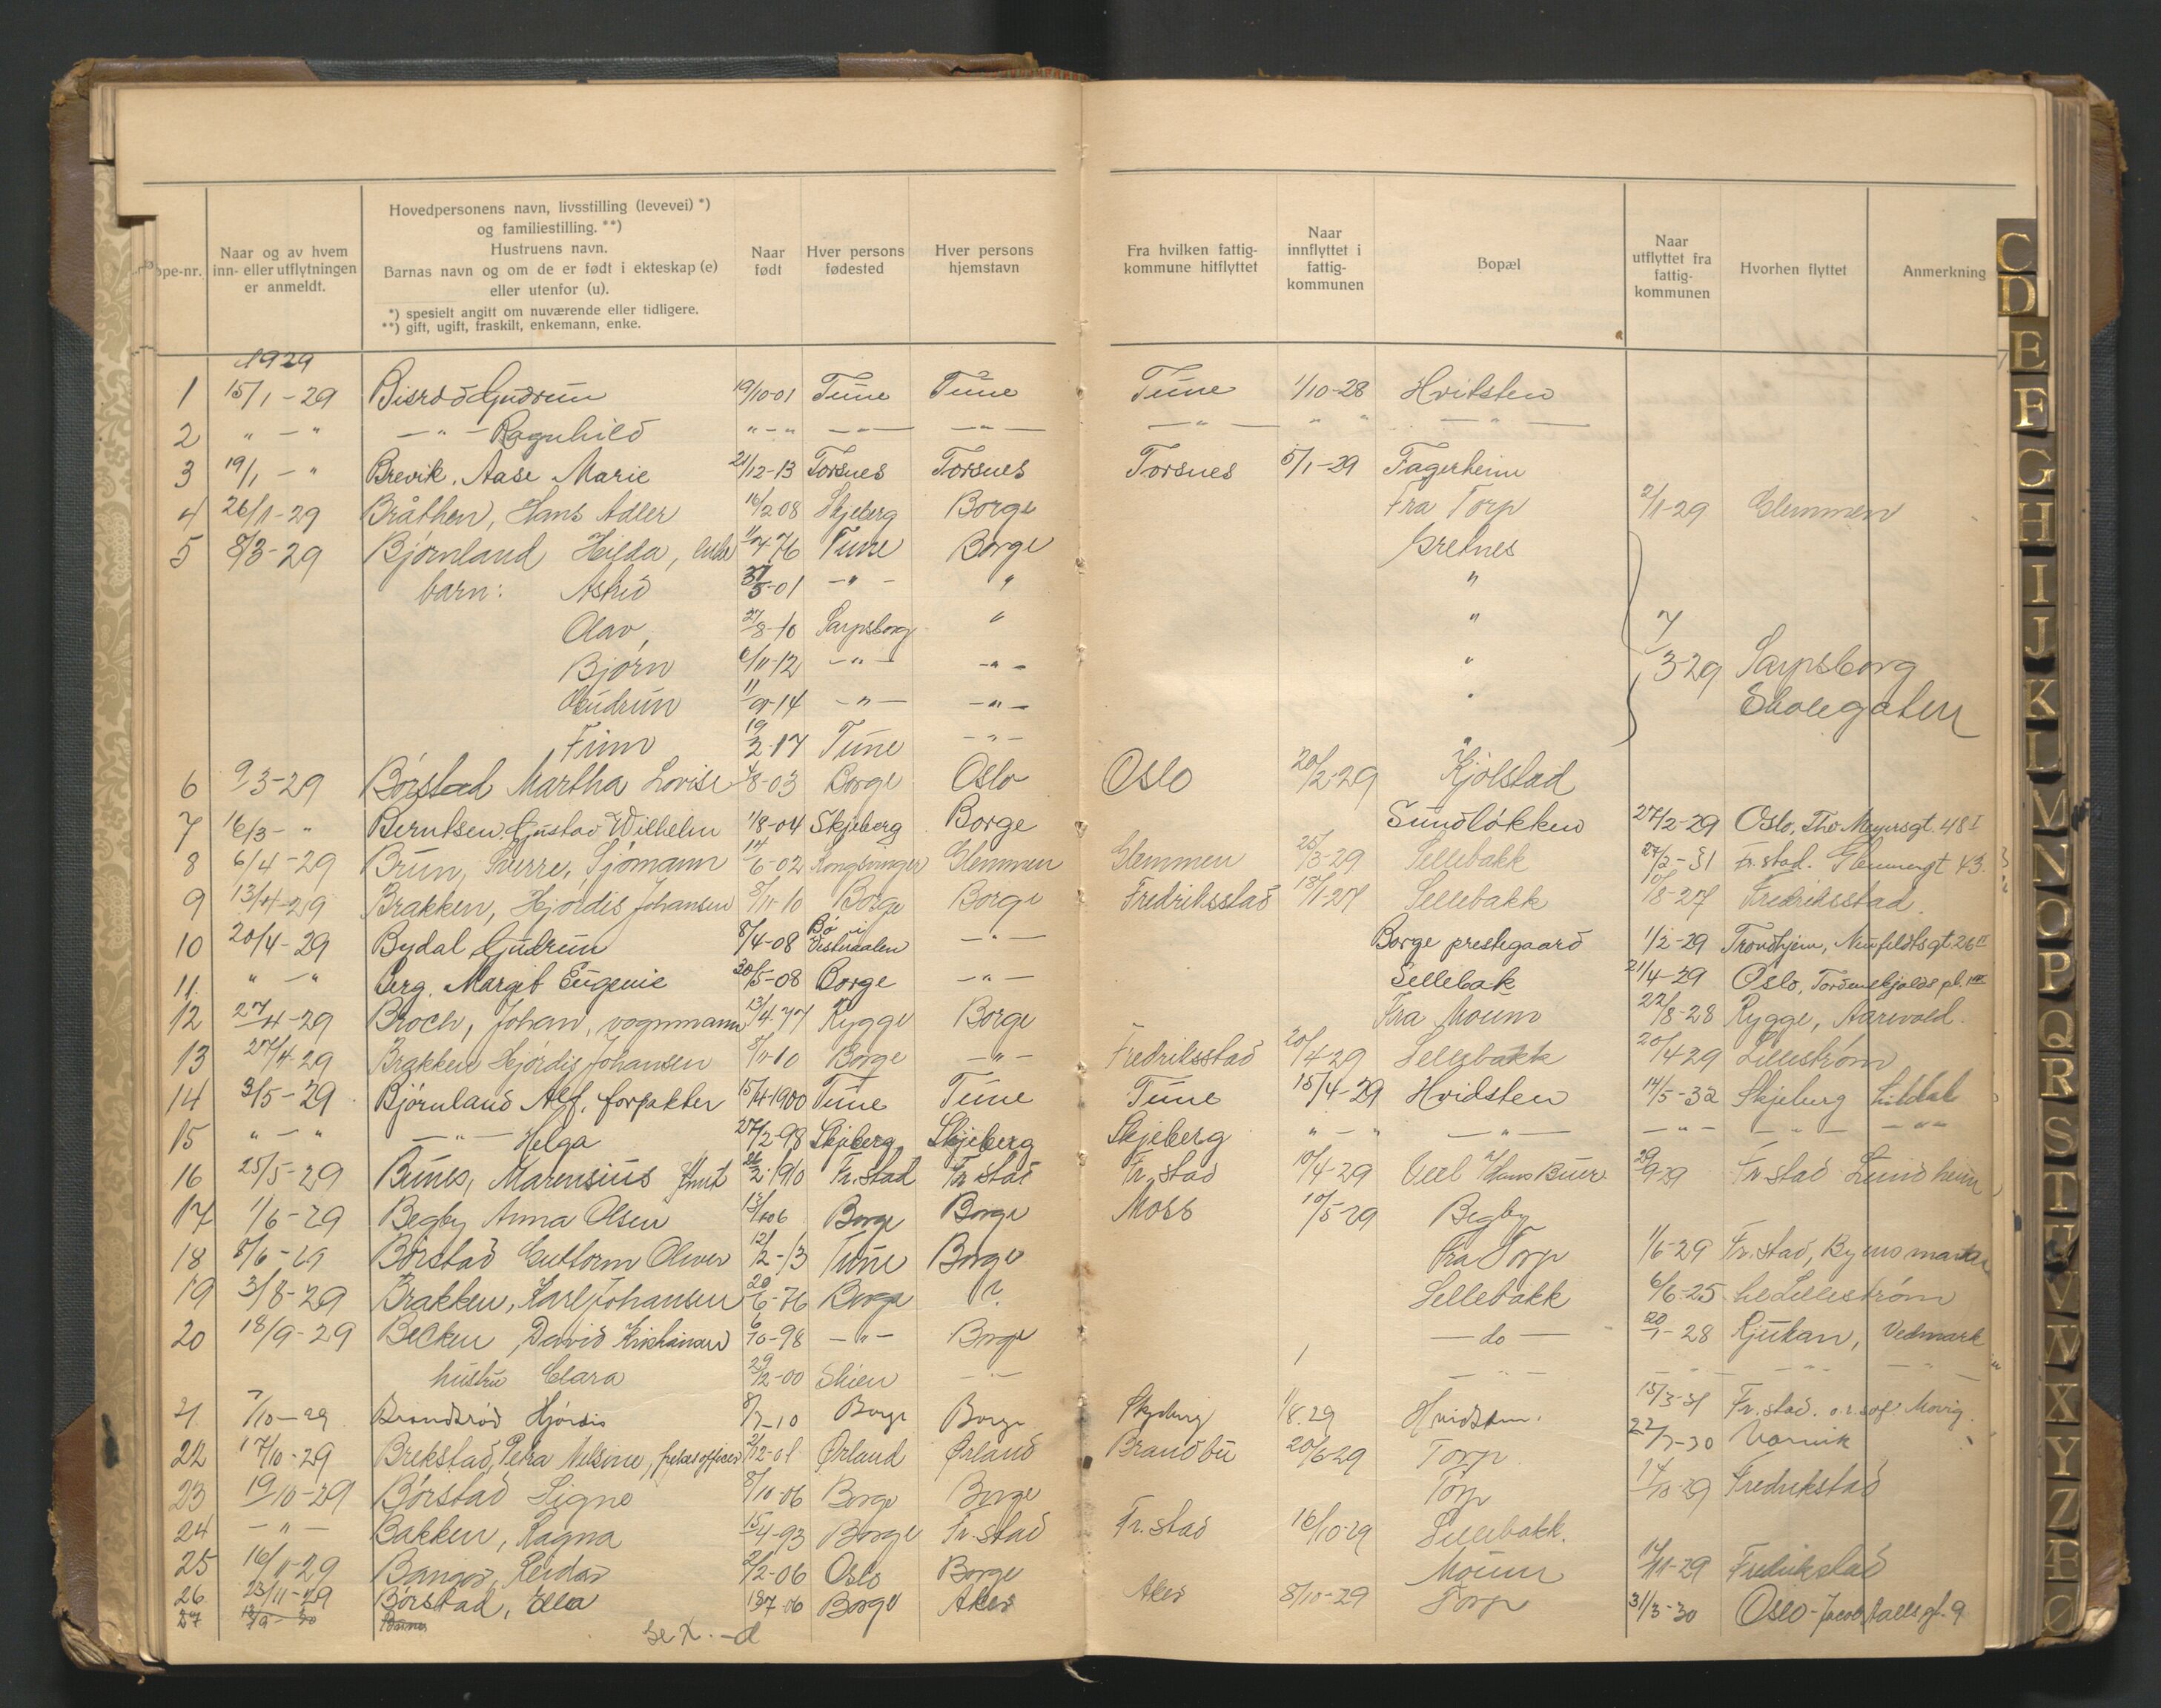 Løpe-nr. Naar og av hvem inn- eller utflytningen er anmeldt. Hovedpersonens navn, livsstilling (levevei) *) og familiestilling. **) Hustruens navn. Barnas navn og om de er født i ekteskap (e) eller utenfor (u). *) spesielt angitt om nuværende eller tidligere. **) gift, ugift, fraskilt, enkemann, enke. Naar født Hver persons fødested Hver persons hjemstavn Fra hvilken fattigkommune hitflyttet Naar innflyttet i fattigkommunen Bopæl Naar utflyttet fra fattigkommunen Hvorhen flyttet Anmerkning
1929
1 15/1-29 Gudrun 19/10-01 Tune Tune Tune 1/10-28 Hvitsten
2 " - " - " - Ragnhild " - " - " - - " - - " - " " - " -
3 19/1 - " Brevik, Aase Marie 21/12-13 Torsnes Torsnes Torsnes 5/1-29 Fagerheim
4 26/1-29 Bråthen, Hans Adler 16/2 08 Skjeberg Borge Fra Torp 2/1-29 Glemmen
5 8/3-29 Bjørnland Hilda, enke 76 Tune Borge Gretnes
barn: Astrid 5-01 - " - " "
Olav, 27/8-10 Sarpsborg " " 7/3-29 Sarpsborg
Bjørn 6/11-12 - " - - " - "
Gudrun 11/9-14 - " - - " - " Skolegaten
Finn 19/2-17 Tune - " - "
6 9/3-29 Børstad Martha Lovise 4/8-03 Borge Oslo Oslo 20/2-29 Kjølstad
7 16/3 - " Berntsen, Gustav Wilhelm 1/8-04 Skjeberg Borge Sundløkken 27/2-29 Oslo, Thv Meyersgt. 48 I
8 6/4-29 Brun, Sverre, Sjømann 14/6-02 Kongsvinger Glemmen Glemmen 25/3-29 Sellebakk 27/2-31 Fr.stad. Glemmengt 43.
9 13/4-29 Brakken, Hjördis Johansen 8/11-10 Borge Borge Fredriksstad 18/1-27 Sellebakk 10/8-27 Fredriksstad.
10 20/4-29 Bydal Gudrun 8/4-08 Bø i Vesteraalen - " - Borge prestegaard 1/2-29 Trondhjem, Ninfeldtsgt 26 II
11. " - " Berg, Margit Eugenie 30/5-08 Borge - " - Sellebak 21/4-29 Oslo, Tordenskjolds pl. 1 III
12 27/4-29 Broch, Johan, vognmann 13/4-77 Rygge Borge Fra Moum 22/8-28 Rygge, Aarvold.
13 27/4-29 Brakken Hjördis Johansen 8/11-10 Borge - " - Fredriksstad 20/4-29 Sellebakk 20/4 29 Lillestrøm
14 3/5-29 Bjørnland Alf. forpakter 15/4-1900 Tune Tune Tune 15/4-29 Hvidsten 14/5-32 Skjeberg Lildal
15 " - " - " - Helga 27/2-98 Skjeberg Skjeberg Skjeberg " - " - " - - " - - " - - " -
16 25/5-29 Marensius 2-1910 Fr.stad Fr.stad Fr.stad 10/4-29 Hans Buer 29/9-29 Fr.stad Lundheim
17 1/6-29 Begby Anna Olsen 06 Borge Borge Moss 10/5-29 Begby
18 8/6-29 Børstad Guttorm Oliver 12/2-13 Tune Borge Fra Torp 1/6-29 Fr.stad, Byens marker
19 3/8-29 Brakken, Karl Johansen 20/6-76 Borge ? Sellebakk 6/6-25 Lillestrøm
20 18/9-29 Becken, David Kristiansen 6/10-98 - " - Borge - do - 20/1-28 Rjukan, Vedmark
hustru Clara 29/12-00 Skien - " - - " - - " - - " -
21 7/10-29 Hjördis 8/7-10 Borge Borge Skjeberg 1/8.29 Hvidsten. 15/3-31 Fr.stad.
22 17/10-29 Brekstad, Petra Nelsine, frelsesofficer 2/12-01 Ørland Ørland Brandbu 20/6-29 Torp 22/7-30
23 19/10-29 Børstad Signe 8/10-06 Borge Borge Torp 14/10-29 Fredrikstad
24 - " - Bakken, Ragna 15/4-93 Borge Fr.stad Fr.stad 16/10-29 Sellebakk.
25 16/11-29 Reidar 2/2-06 Oslo Borge Moum 14/11-29 Fredrikstad
26 23/11-29 Børstad, Ella 7-06 Borge Aker Aker 8/10-29 Torp 31/3-30 Oslo - Jacob Aallsgt. 9
27
C
D
E
F
G
H
I
J
K
L
M
N
O
P
Q
R
S
T
U
V
W
X
Y
Z
Æ
Ø